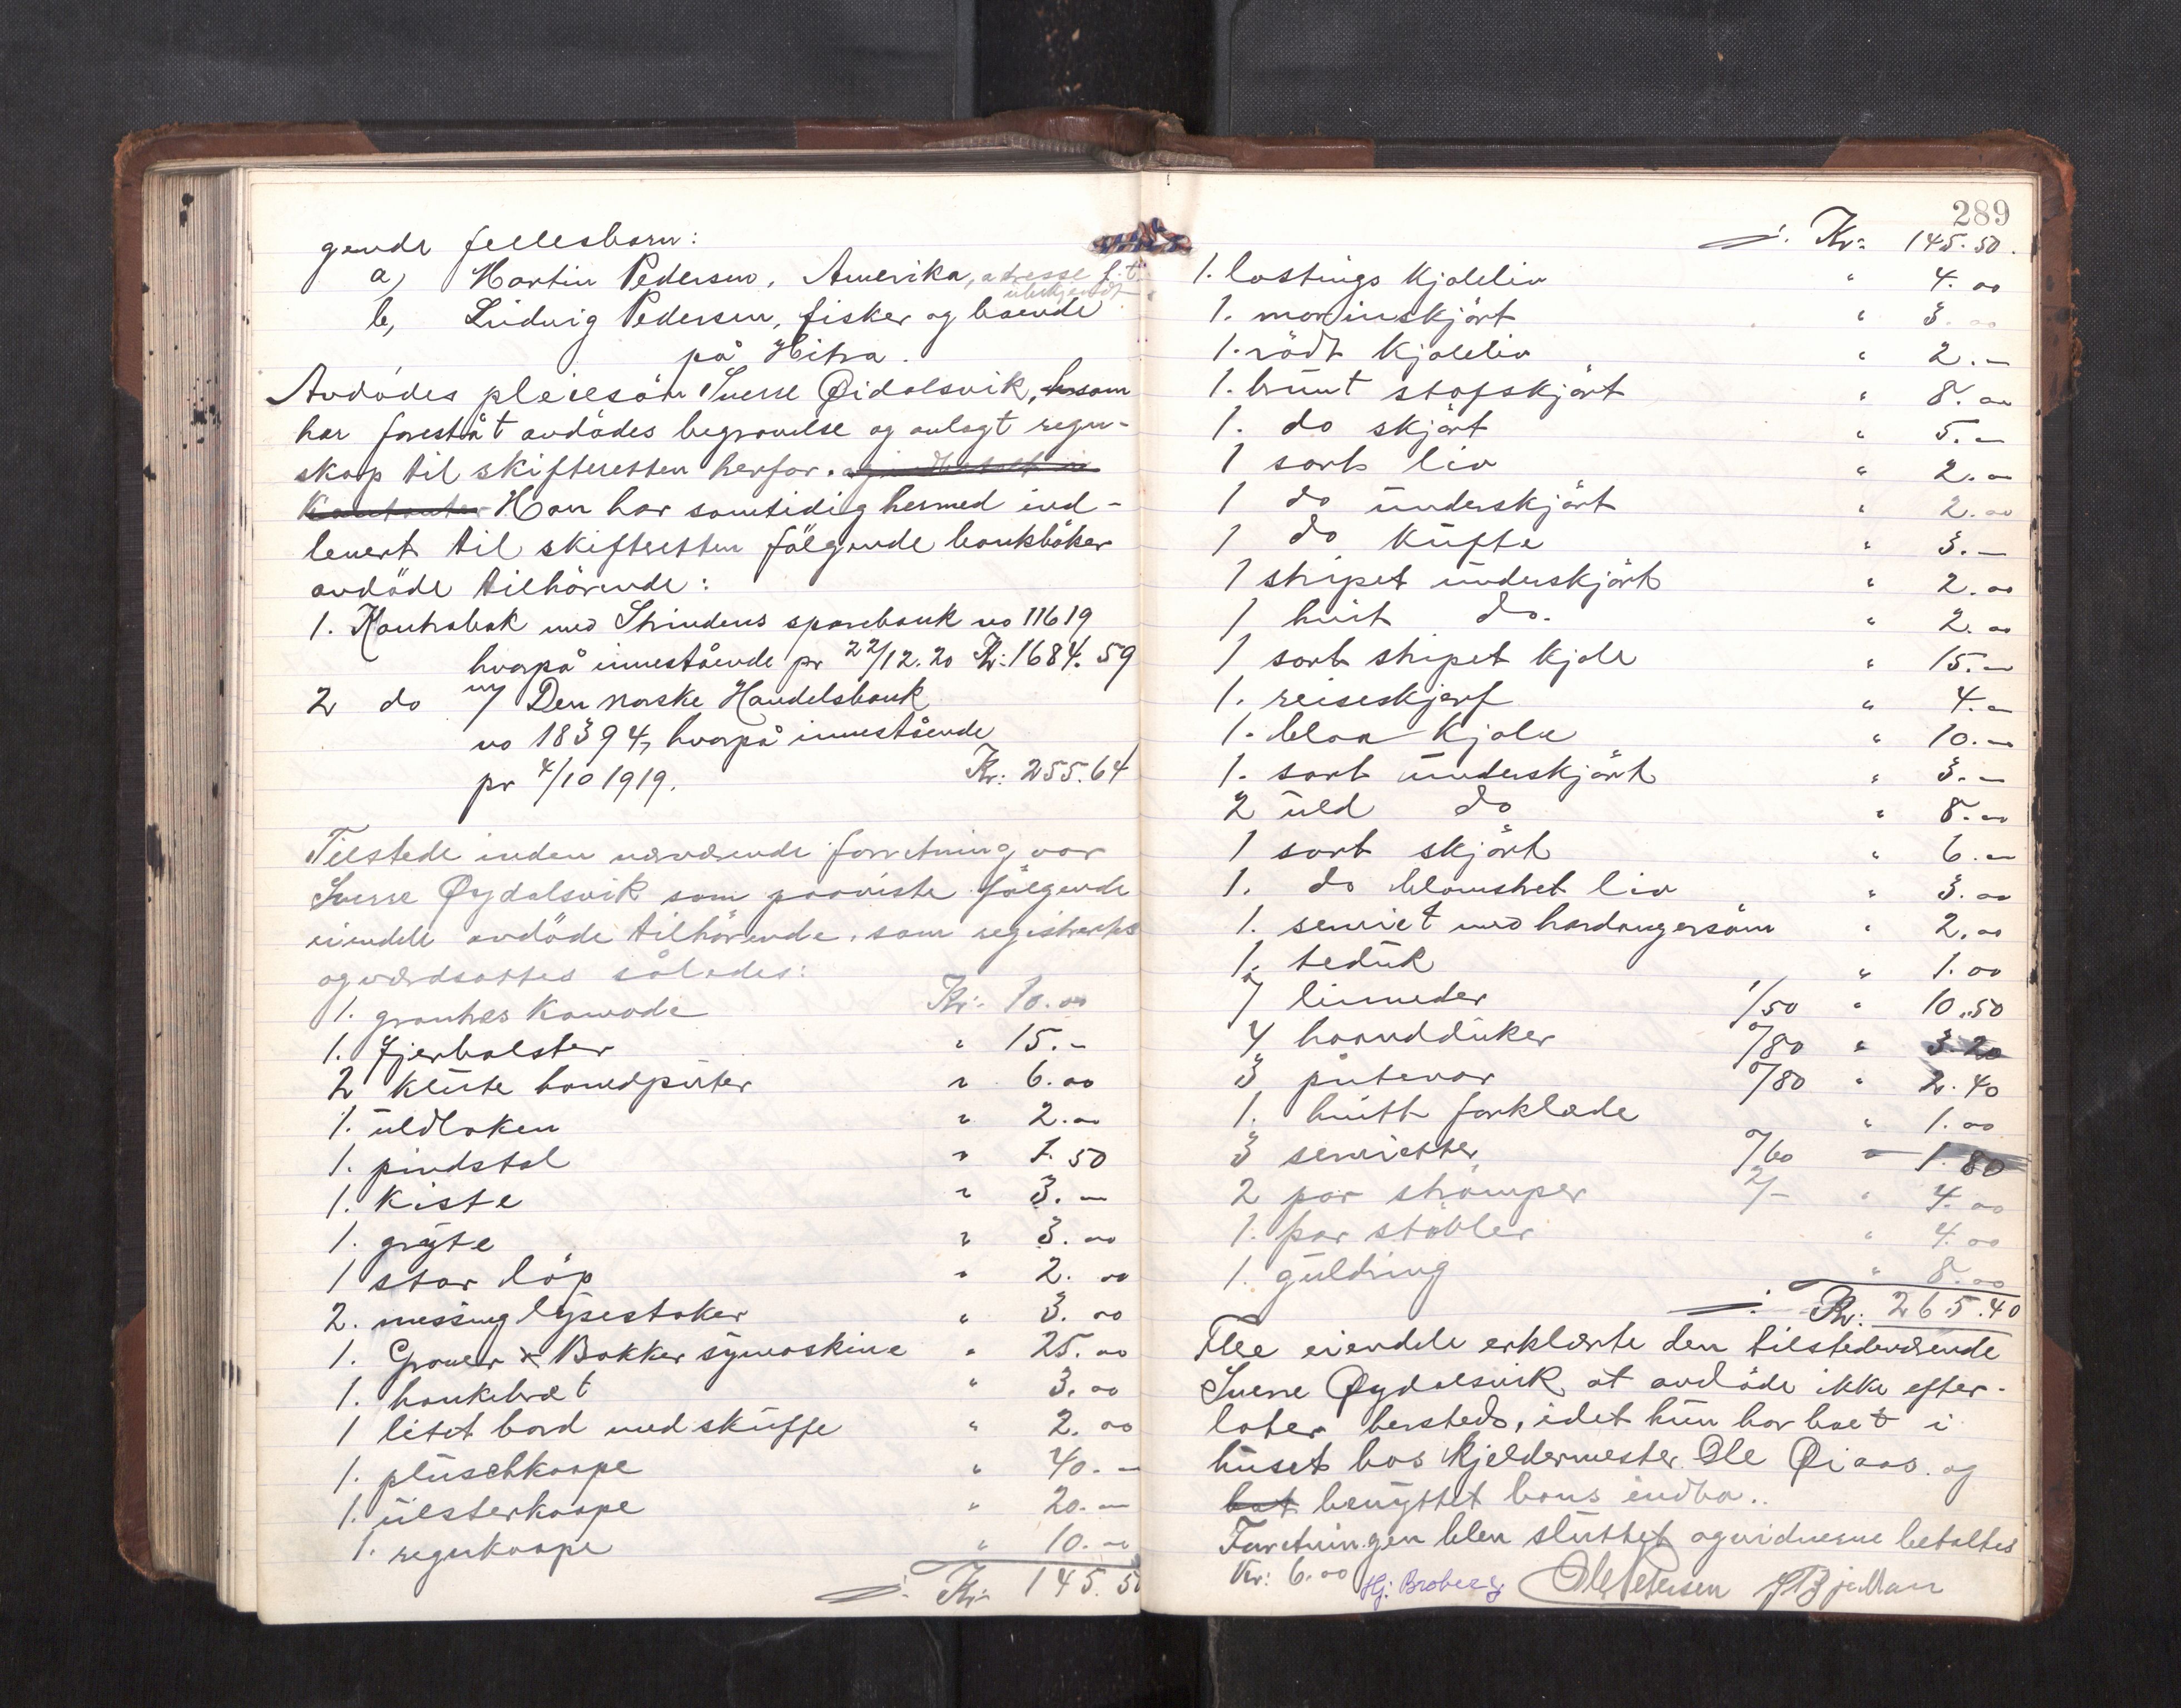 gende fellesbarn:
a, Martin Pedersen, Amerika, adresse f.t. ubekjendt
b, Ludvig Pedersen, fisker og boende
på Hitra.
Avdödes pleiesön Sverre Øidalsvik, som
har forestå̊t avdödes begravelse og avlagt regn-
skap til skifteretten herfor.
Han har samtidig hermed ind-
levert til skifteretten fölgende bankböker
avdöde tilhörende:
1. Kontrabok med Strindens sparebank no 11619
hvorpå innestående pr 22/12.20 Kr: 1684.59
2 do m/ Den norske Handelsbank
no 18394, hvorpå innestående
pr 4/10 1919. Kr: 255.64
Tilstede under nærværende forretning var
Sverre Øydalsvik som paaviste fölgende
eiendele avdöde tilhörende, som registrertes
og værdsattes således:
1. grantræs Komode Kr: 10.00
1. fjerbolster " 15.-
2 hodeputer " 6.00
1. uldlaken " 2.00
1. pindstol " 1.50
1. Kiste " 3.-
1. gryte " 3.00
1 stor löp " 2.00
2. messing lysestaker " 3.00
1. Grover & Bakker symaskine " 25.00
1. hankebræt " 3.00
1 litet bord med skuffe " 2.00
1. plüschkaape " 40.-
1. ülsterkaape " 20.-
1. regnkaape " 10.-
Kr: 145.50
289
Kr: 145.50.
1. lastings Kjoleliv " 4.00
1. morinskjört " 3.00
1. rödt Kjoleliv " 2.-
1. brunt stofskjört " 8.00
1. do skjört " 5.-
1 sort liv " 2.00
1 do underskjört " 2.00
1 do Kufte " 3.-
1 stripet underskjört " 2.00
1 hvit do. " 2.00
1 sort stripet kjole " 15.-
1. reiseskjerf " 4.-
1. blaa Kjole " 10.-
1. sort underskjört " 3.-
2 uld do " 8.00
1 sort skjört " 6.-
1. do blomstret liv " 3.00
1. serviet med hardangersöm " 2.00
1. teduk " 1.00
7 linneder 1/50 " 10.50
4 haandduker 0/80 " 3.20
3 putevar 0/80 " 2.40
1. hvitt forklæde " 1.00
3 servietter 0/60 " 1.80
2 par strömper 2/- " 4.00
1. par stövler " 4.00
1. guldring " 8.00
Kr: 265.40
Flere eiendele erklærte den tilstedeværende
Sverre Øydalsvik at avdöde ikke efter-
later hersteds, idet hun har boet i
huset hos kjeldermester Ole Øiaas og
benyttet hans indbo..
Forretningen blev sluttet og vidnerne betaltes
Kr: 6.00 Hj. Broberg Ole Petersen